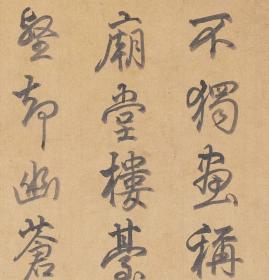 不獨畫稱
廟堂樓臺
壑却幽蒼